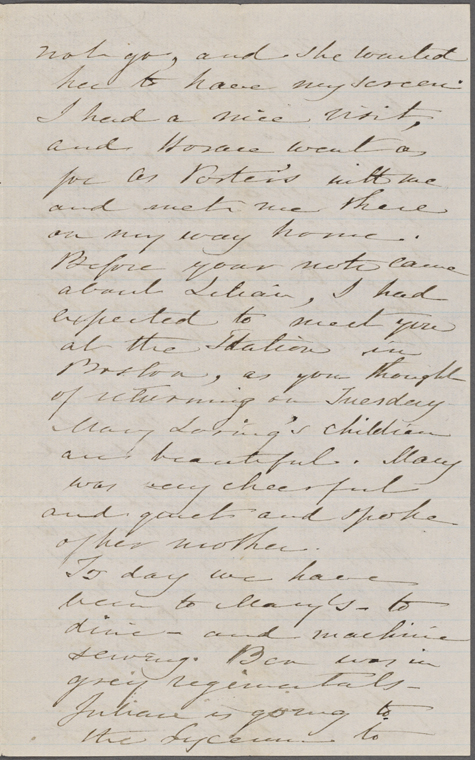 not go, and she wanted
her to have my screen.
I had a nice visit,
and Horace went as
far as Porter's with me
and met me there
on my way home.
Before your note came
about Lilian, I had
expected to meet you
at the Station in
Boston, as you thought
of returning on Tuesday
Mary Loring's children
are beautiful. Mary
was very cheerful
and quiet and spoke
of her mother.
To day we have
been to Mary's - to
dine - and machine
sewing. Ben was in
grey regimentals -
Julian is going to
the Lyceum to